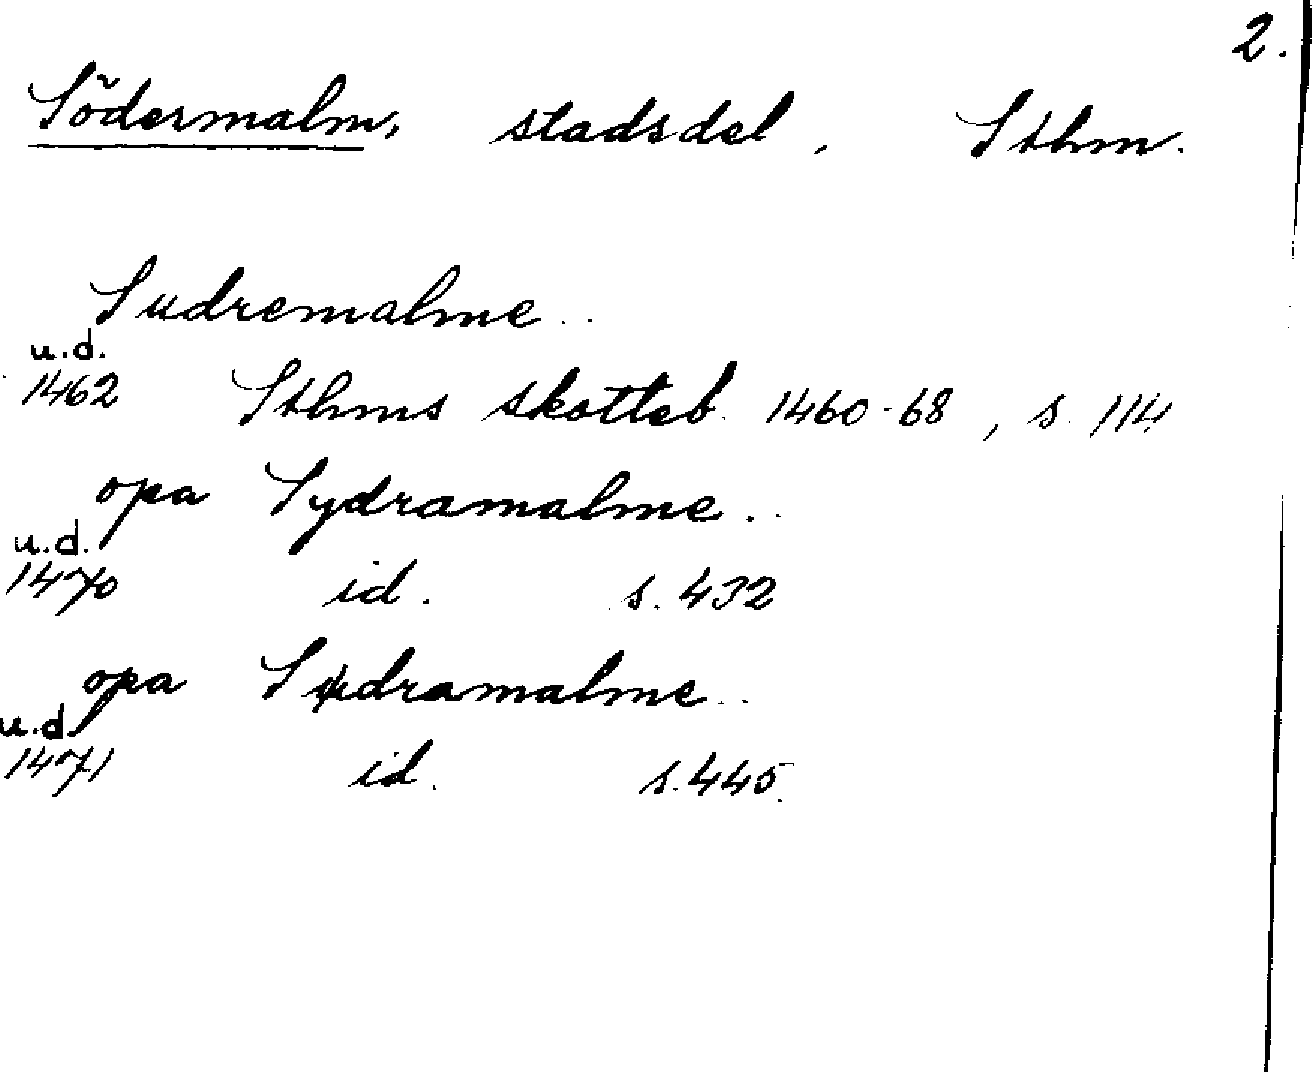 2.
Södermalm, stadsdel, Sthm.
Sudremalme..
u.d.
1462 Sthms skotteb. 1460-68, s. 114
opa Sydramalme..
u.d.
1470 id. s. 432
opa Sudramalme..
u.d.
1471 id. s. 445.